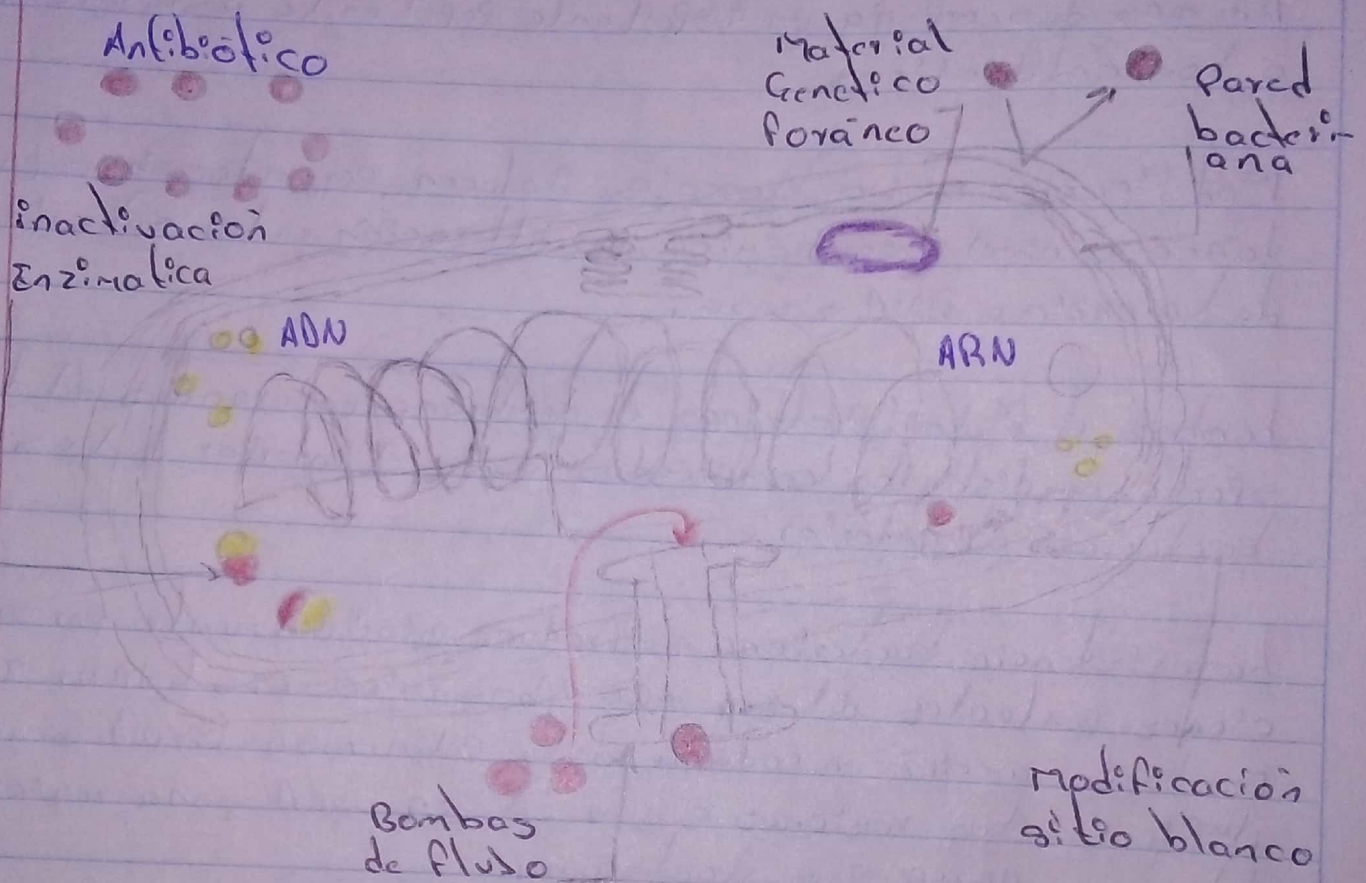 Antibiótico
Material
Genetico
foráneo
Pared
bacteri-
ana
inactivación
Enzimatica
ADN
ARN
Bombas
de fluso
Modificación
sitio blanco